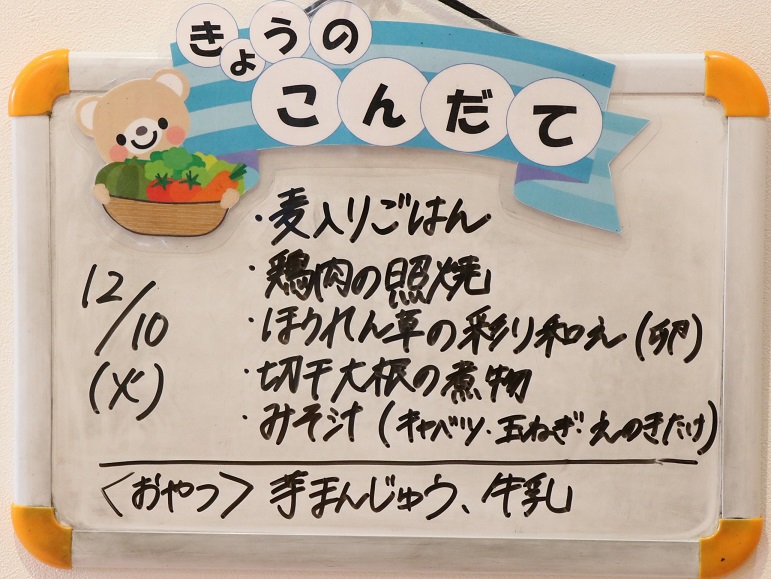 きょうの
こんだて
12/10
(火)
・麦入りごはん
・鶏肉の照焼
・ほうれん草の彩り和え(卵)
・切干大根の煮物
・みそ汁(キャベツ・玉ねぎ・えのきたけ)
〈おやつ〉芋まんじゅう、牛乳